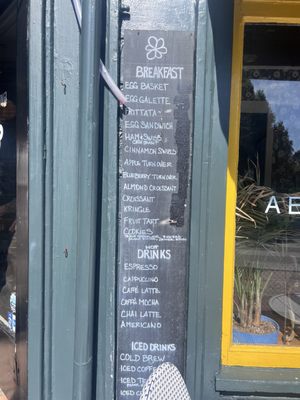 BREAKFAST
EGG BASKET
EGG GALETTE
FRITTATA
EGG SANDWICH
HAM & SWISS
CINNAMON SWIRLS
APPLE TURNOVER
BLUEBERRY TURNOVER
ALMOND CROISSANT
CROISSANT
KRINGLE
FRUIT TART
COOKIES
HOT
DRINKS
ESPRESSO
CAPPUCCINO
CAFÉ LATTE
CAFFE MOCHA
CHAI LATTE
AMERICANO
ICED DRINKS
COLD BREW
ICED COFFEE
ICED TE
ICED C
AE